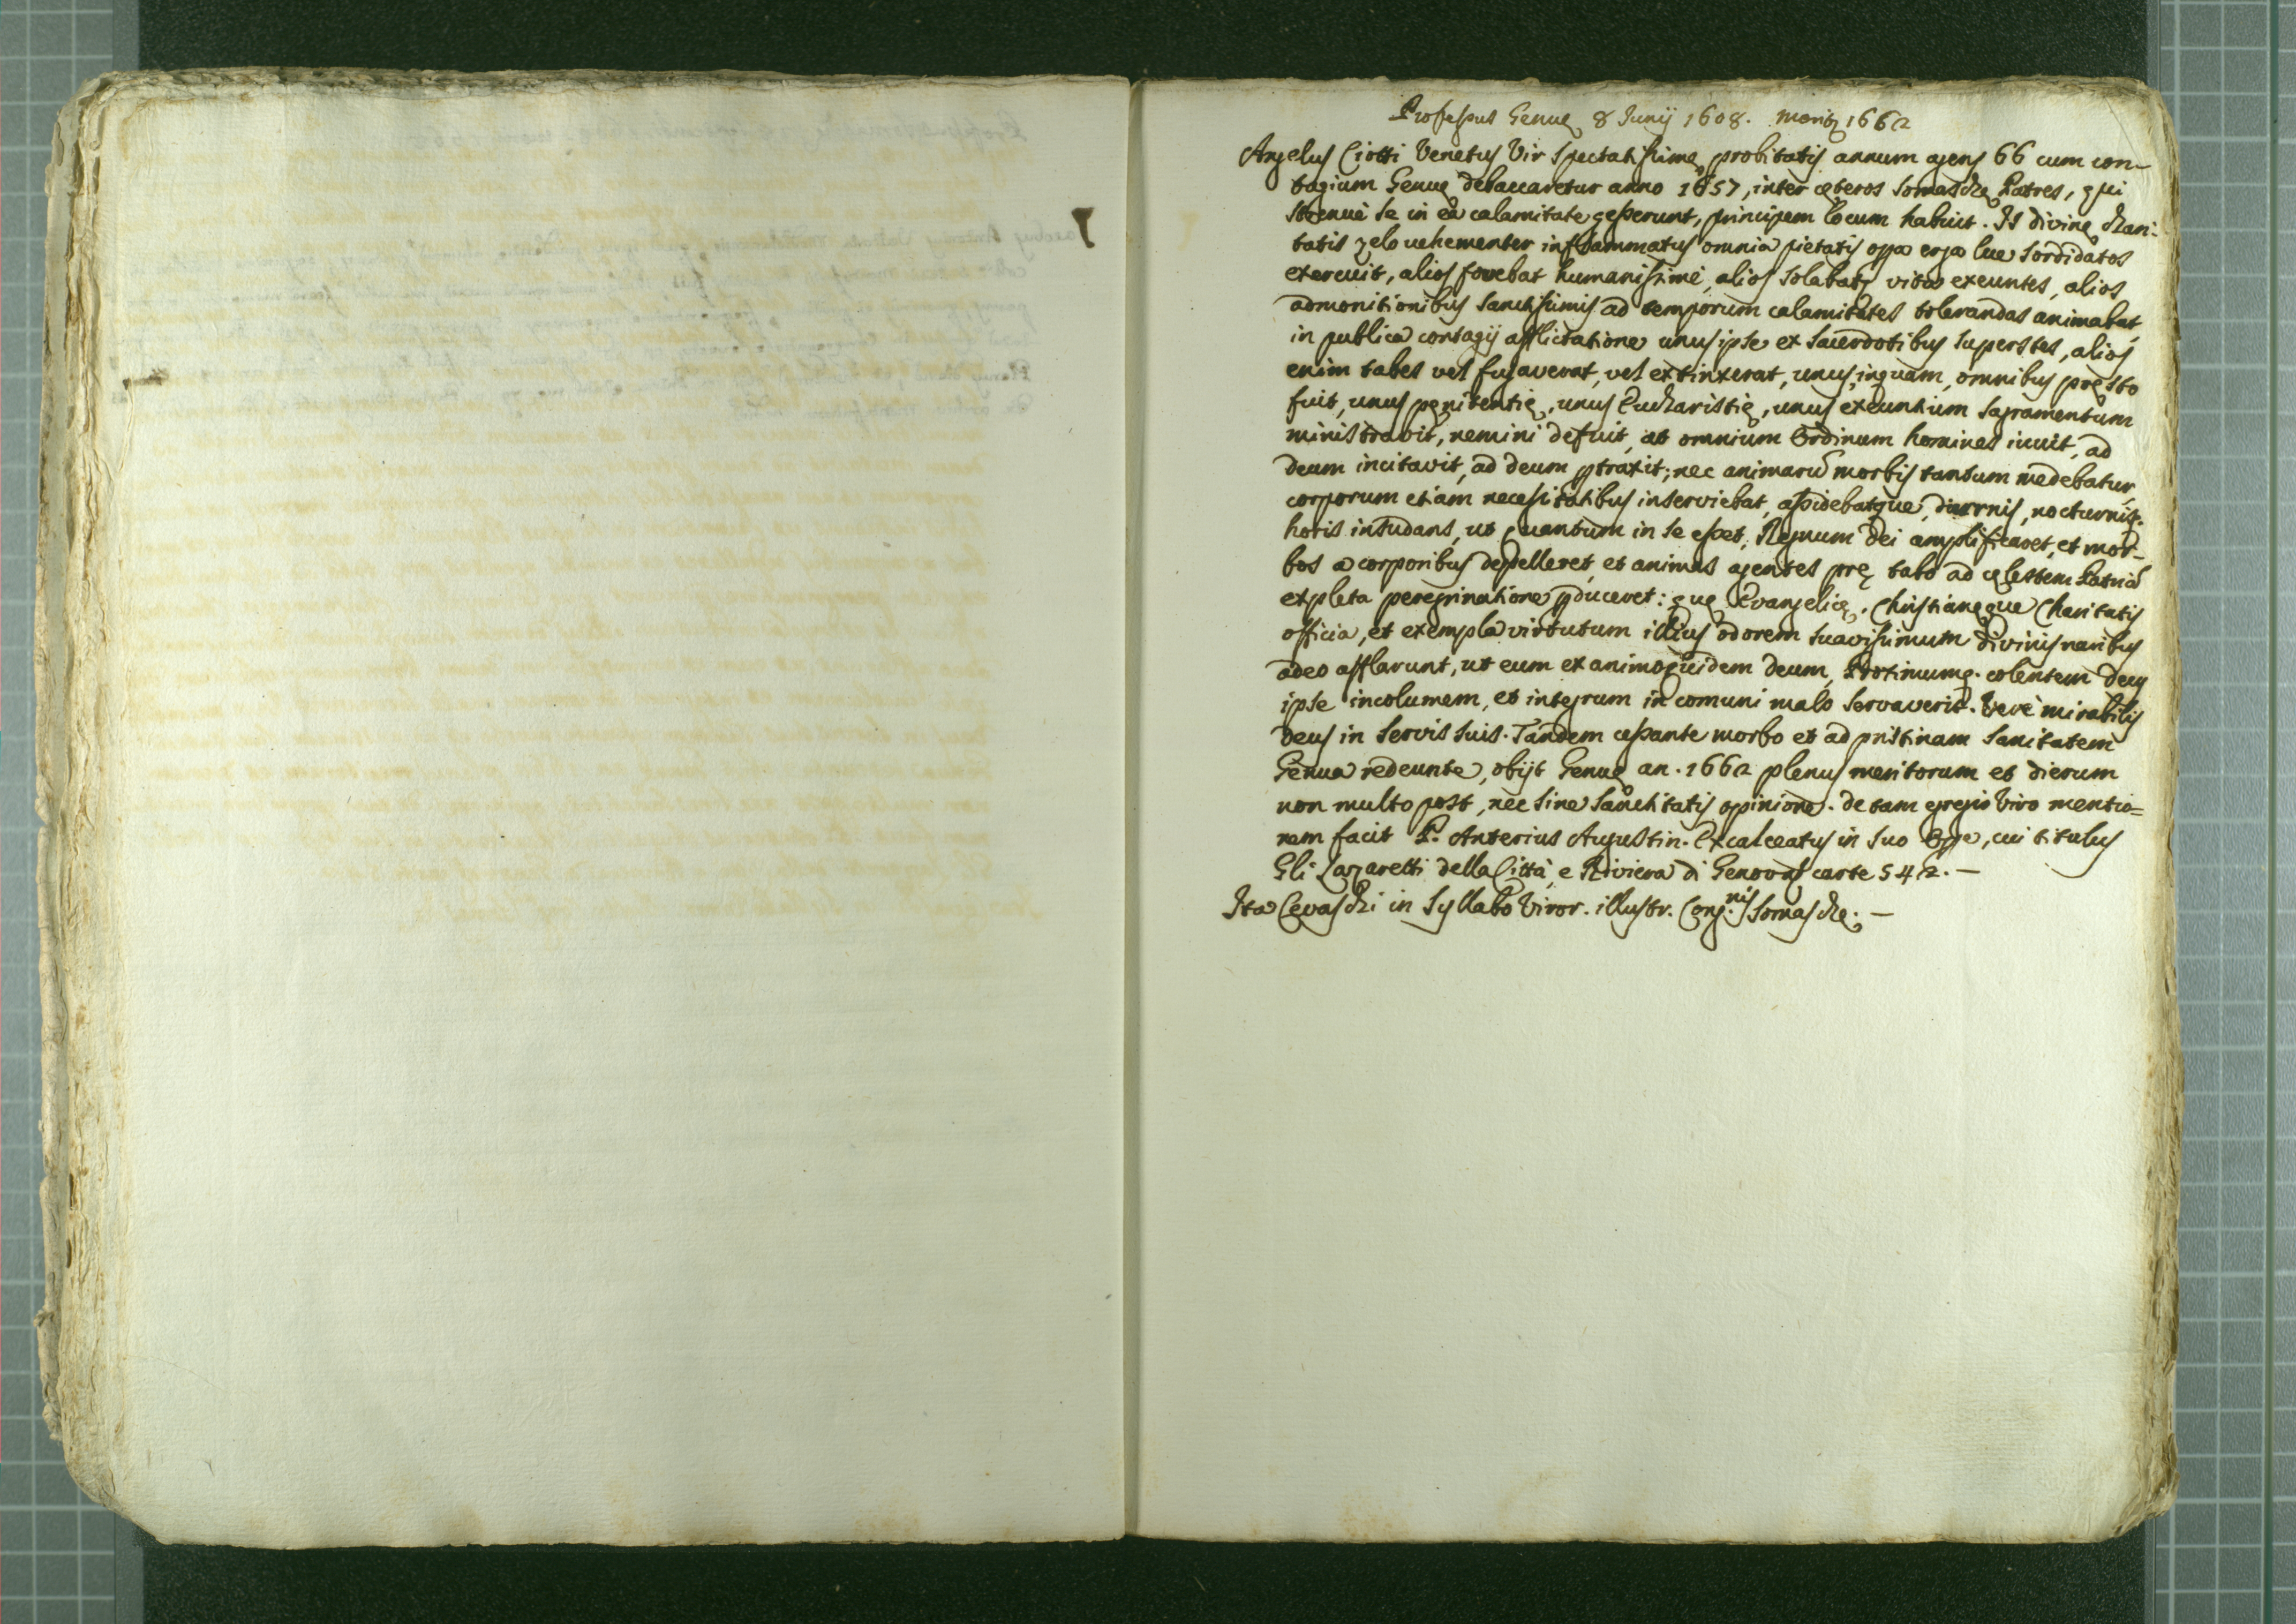 Professus Genuę 8 Junij 1608. moritʒ 1662
Angelus Ciotti Venetus Vir spectatissimę probitatis annum agens 66 cum con-
tagium Genuę debaccaretur anno 1657, inter cęteros Somaschę Patres, qui
strenuè se in ea calamitate gesserunt, principem locum habuit. Is divinę chari-
tatis zelo vehementer inflammatus omnia pietatis opa erga lue sordidatos
exercuit, alios fovebat humanissimè, alios solabatʒ vita exeuntes, alios
admonitionibus sanctissimis ad temporum calamitates tolerandas animabat,
in publica contagij afflictatione unus ipse ex sacerdotibus superstes, alios
enim tabes vel fugaverat, vel extinxerat, unus, inquam, omnibus pręsto
fuit, unus pęnitentię, unus Eucharistię, unus exeuntium sagramentum
ministravit, nemini defuit, at omnium Ordinum homines iuuit, ad
deum incitavit, ad deum ptraxit; nec animarũ morbis tantum medebatur,
corporum etiam necessitatibus inserviebat, assidebatque, diurnis, nocturnisq.
horis insudans, ut quantum in se esset, Regnum Dei amplificaret, et mor-
bos a corporibus depelleret, et animas agentes prę tabo ad cęlestem Patriã
expleta peregrinatione pduceret: quę Evangelicę, Christianęque Charitatis
officia, et exempla virtutum illius odorem suavissimum divinis naribus
adeo afflarunt, ut eum ex animo quidem deum, Proximumq. colentem deus
ipse incolumem, et integrum in comuni malo servaverit. Verè mirabilis
deus in servis suis. Tandem cessante morbo et ad pristinam sanitatem
Genua redeunte, obijt Genuę an. 1662 plenus meritorum et dierum
non multo post, nec sine sanctitatis opinione. de tam egregio Viro mentio=
nem facit P. Anterius Augustin. Excalceatus in suo Ope, cui titulus
Gli Lazaretti della Città, e Riviera di Genova à carte 542. —
Ita Cevaschi in Syllabo Viror. illustr. Cong.nis Somaschę. —